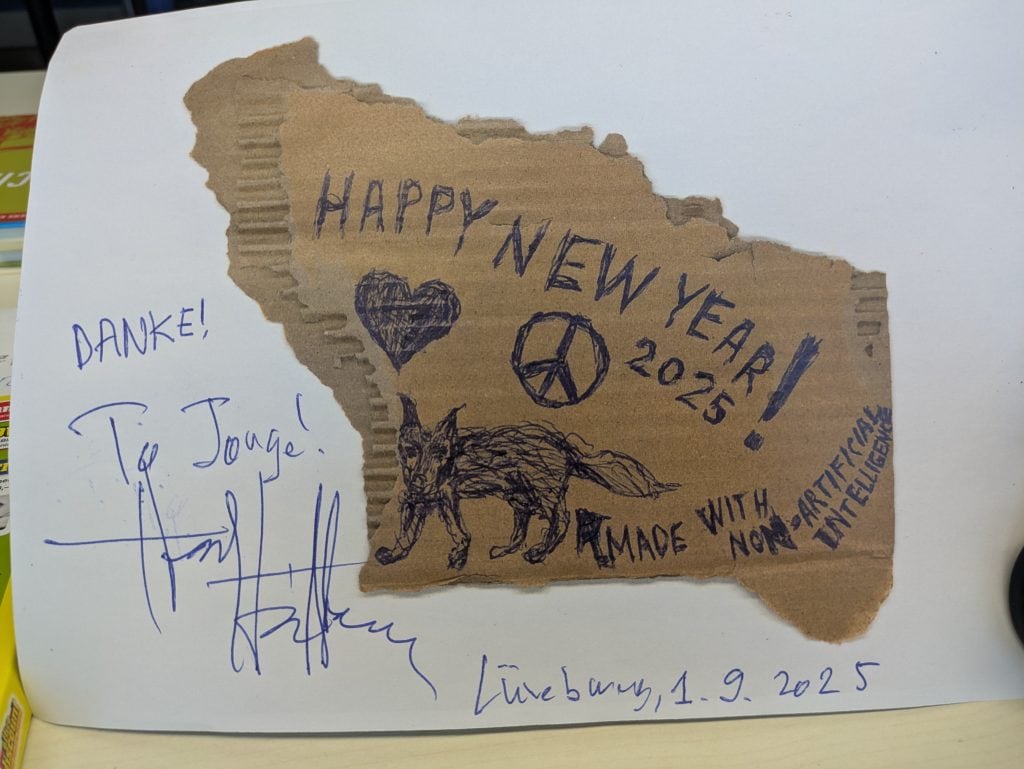 HAPPY NEW YEAR!
2025
MADE WITH
NON-ARTIFICIAL
INTELLIGENCE
DANKE!
To Jouge!
Lüneburg, 1.9.2025